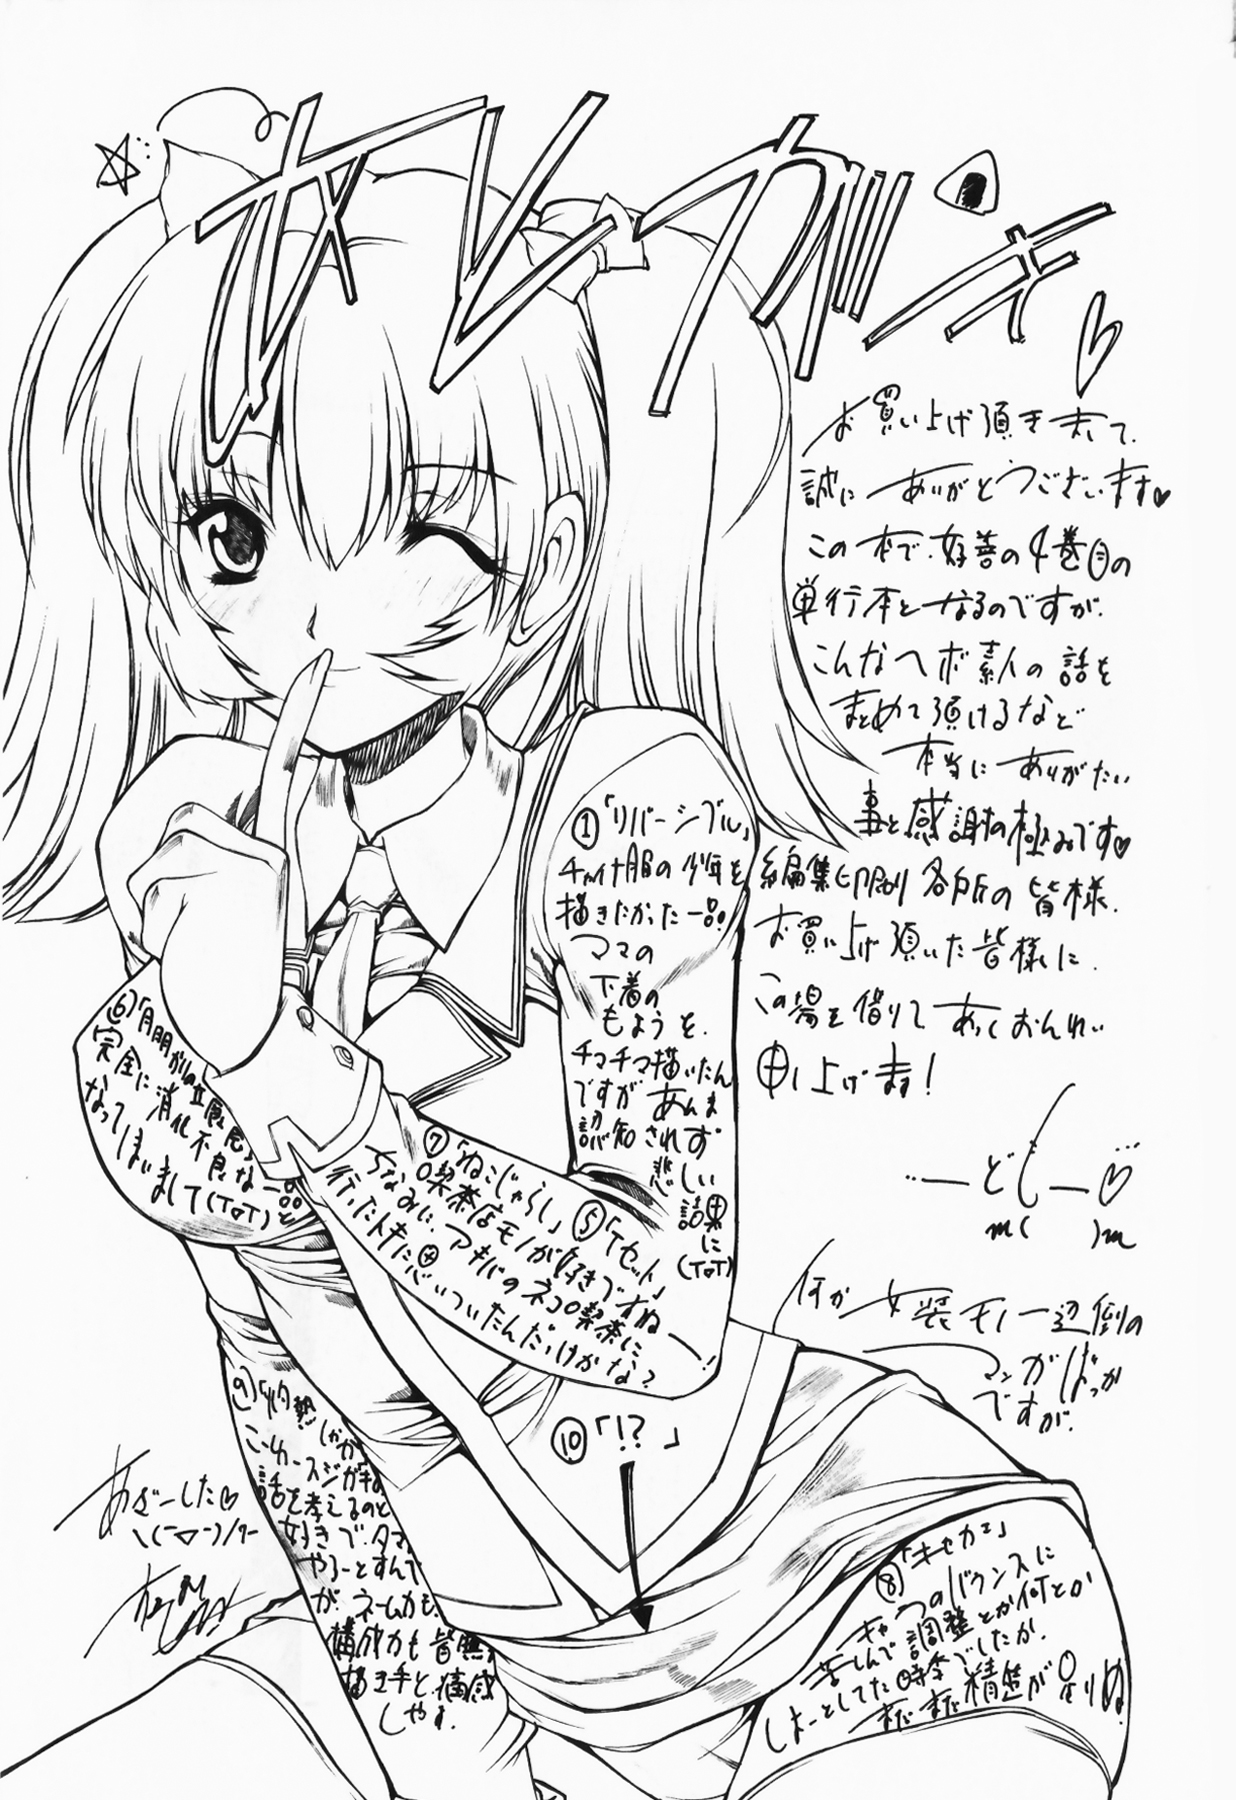 オレガキ
お買い上げ頂きまして、
誠にありがとうございます♥
この本で、好善の4巻目の
単行本となるのですが、
こんなヘボ素人の話を
まとめて頂けるなど
本当にありがたい
事と感謝の極みです♥
編集、印刷、各所の皆様、
お買い上げ頂いた皆様に、
この場を借りてあつくおんれい
申し上げます!
どもー♡
m( )m
何か女装モノ一辺倒の
マンガばっか
ですが、
①「リバーシブル」
チャイナ服の少年を
描きたかった一品。
ママの
下着の
もようを、
チマチマ描いたん
ですがあんま
認知されず
悲しい
結果に
(ToT)
⑤「Tセット」
⑥
完全に消化不良な一品と
なってしまいまして(ToT)
⑦「ねこじゃらし」
喫茶店モノが好きですねー!
ちなみに、アキバのネコ喫茶に
行ったトキに思いついたんだっけかな?
⑧「キセカエ」
キャラのバウンスに
苦しんで調整とか何とか
しよーとしてた時季でしたか、
まだまだ精進が足りぬ。
⑨
こーゆースジガキな
話を考えるのと
好きで、タマ
やろーとすんで
が、ネーム力も、
構成力も皆無、
描き手と、痛感
しやす。
⑩「!?」
あざーした♡
\(ー▽ー)/